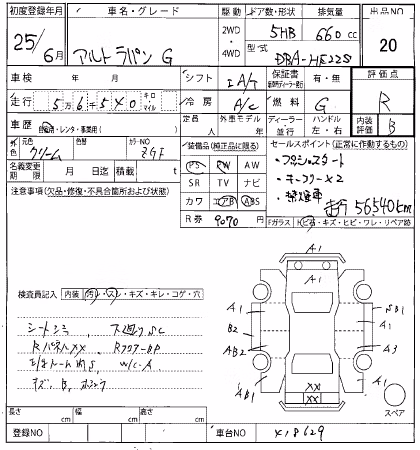 初度登録年月 車名・グレード 駆動 ドア数・形状 排気量 出品NO
25/6月 アルトラパン G 2WD・4WD 5HB 660cc 20
型式 DBA-HE22S
車検 年 月 シフト IA/T 保証書 有・無 評価点
走行 5万6千540 キロ・マイル 冷房 A/C 燃料 G R
車歴 自家用・レンタ・事業用( ) 定員 人 外車モデル 年 ディーラー 並行 ハンドル 左・右 内装評価 B
外色 元色 クリーム 色替 カラーNO ZQF
装備品(純正品に限る)
PS PW AW
SR TV ナビ
カワ エアB ABS
R券 9070 円
セールスポイント(正常に作動するもの)
・プッシュスタート
・キーフリーX2
・禁煙車
走行 56540km
名義変更期限 月 日迄 積載 t
注意事項(欠品・修復・不具合箇所および状態)
Fガラス トビ石・キズ・ヒビ・ワレ・リペア跡
検査員記入 内装 汚レ・スレ・キズ・キレ・コゲ・穴
シートシミ
RパネルXX
W/C・A
A1
A1
A1
B2
AB2
AB1
SB1
A1
A3
A1
XX
XX
A1
スペア
長さ cm 幅 cm 高さ cm
登録NO 車台NO 418629